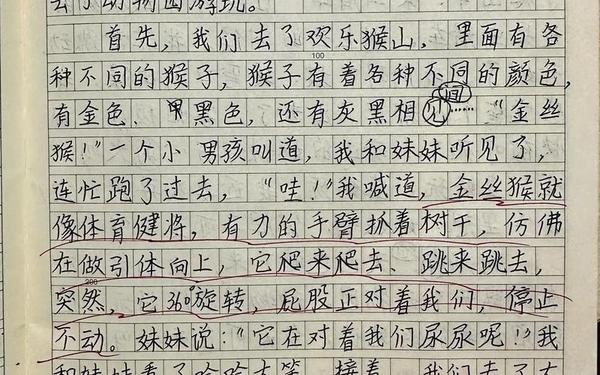 去了动物园游玩。
首先，我们去了欢乐猴山，里面有各
100
种不同的猴子，猴子有着各种不同的颜色，
有金色、黑色，还有灰黑相见……“金丝
间
猴！”一个小男孩叫道，我和妹妹听见了，
连忙跑了过去，“哇！”我喊道，金丝猴就
像体育健将，有力的手臂抓着树干，仿佛
在做引体向上，它爬来爬去、跳来跳去，
200
突然，它360°旋转，屁股正对着我们，停止
不动。妹妹说：“它在对着我们尿尿呢！”我
和妹妹看了哈哈大笑。接着，我们去了大